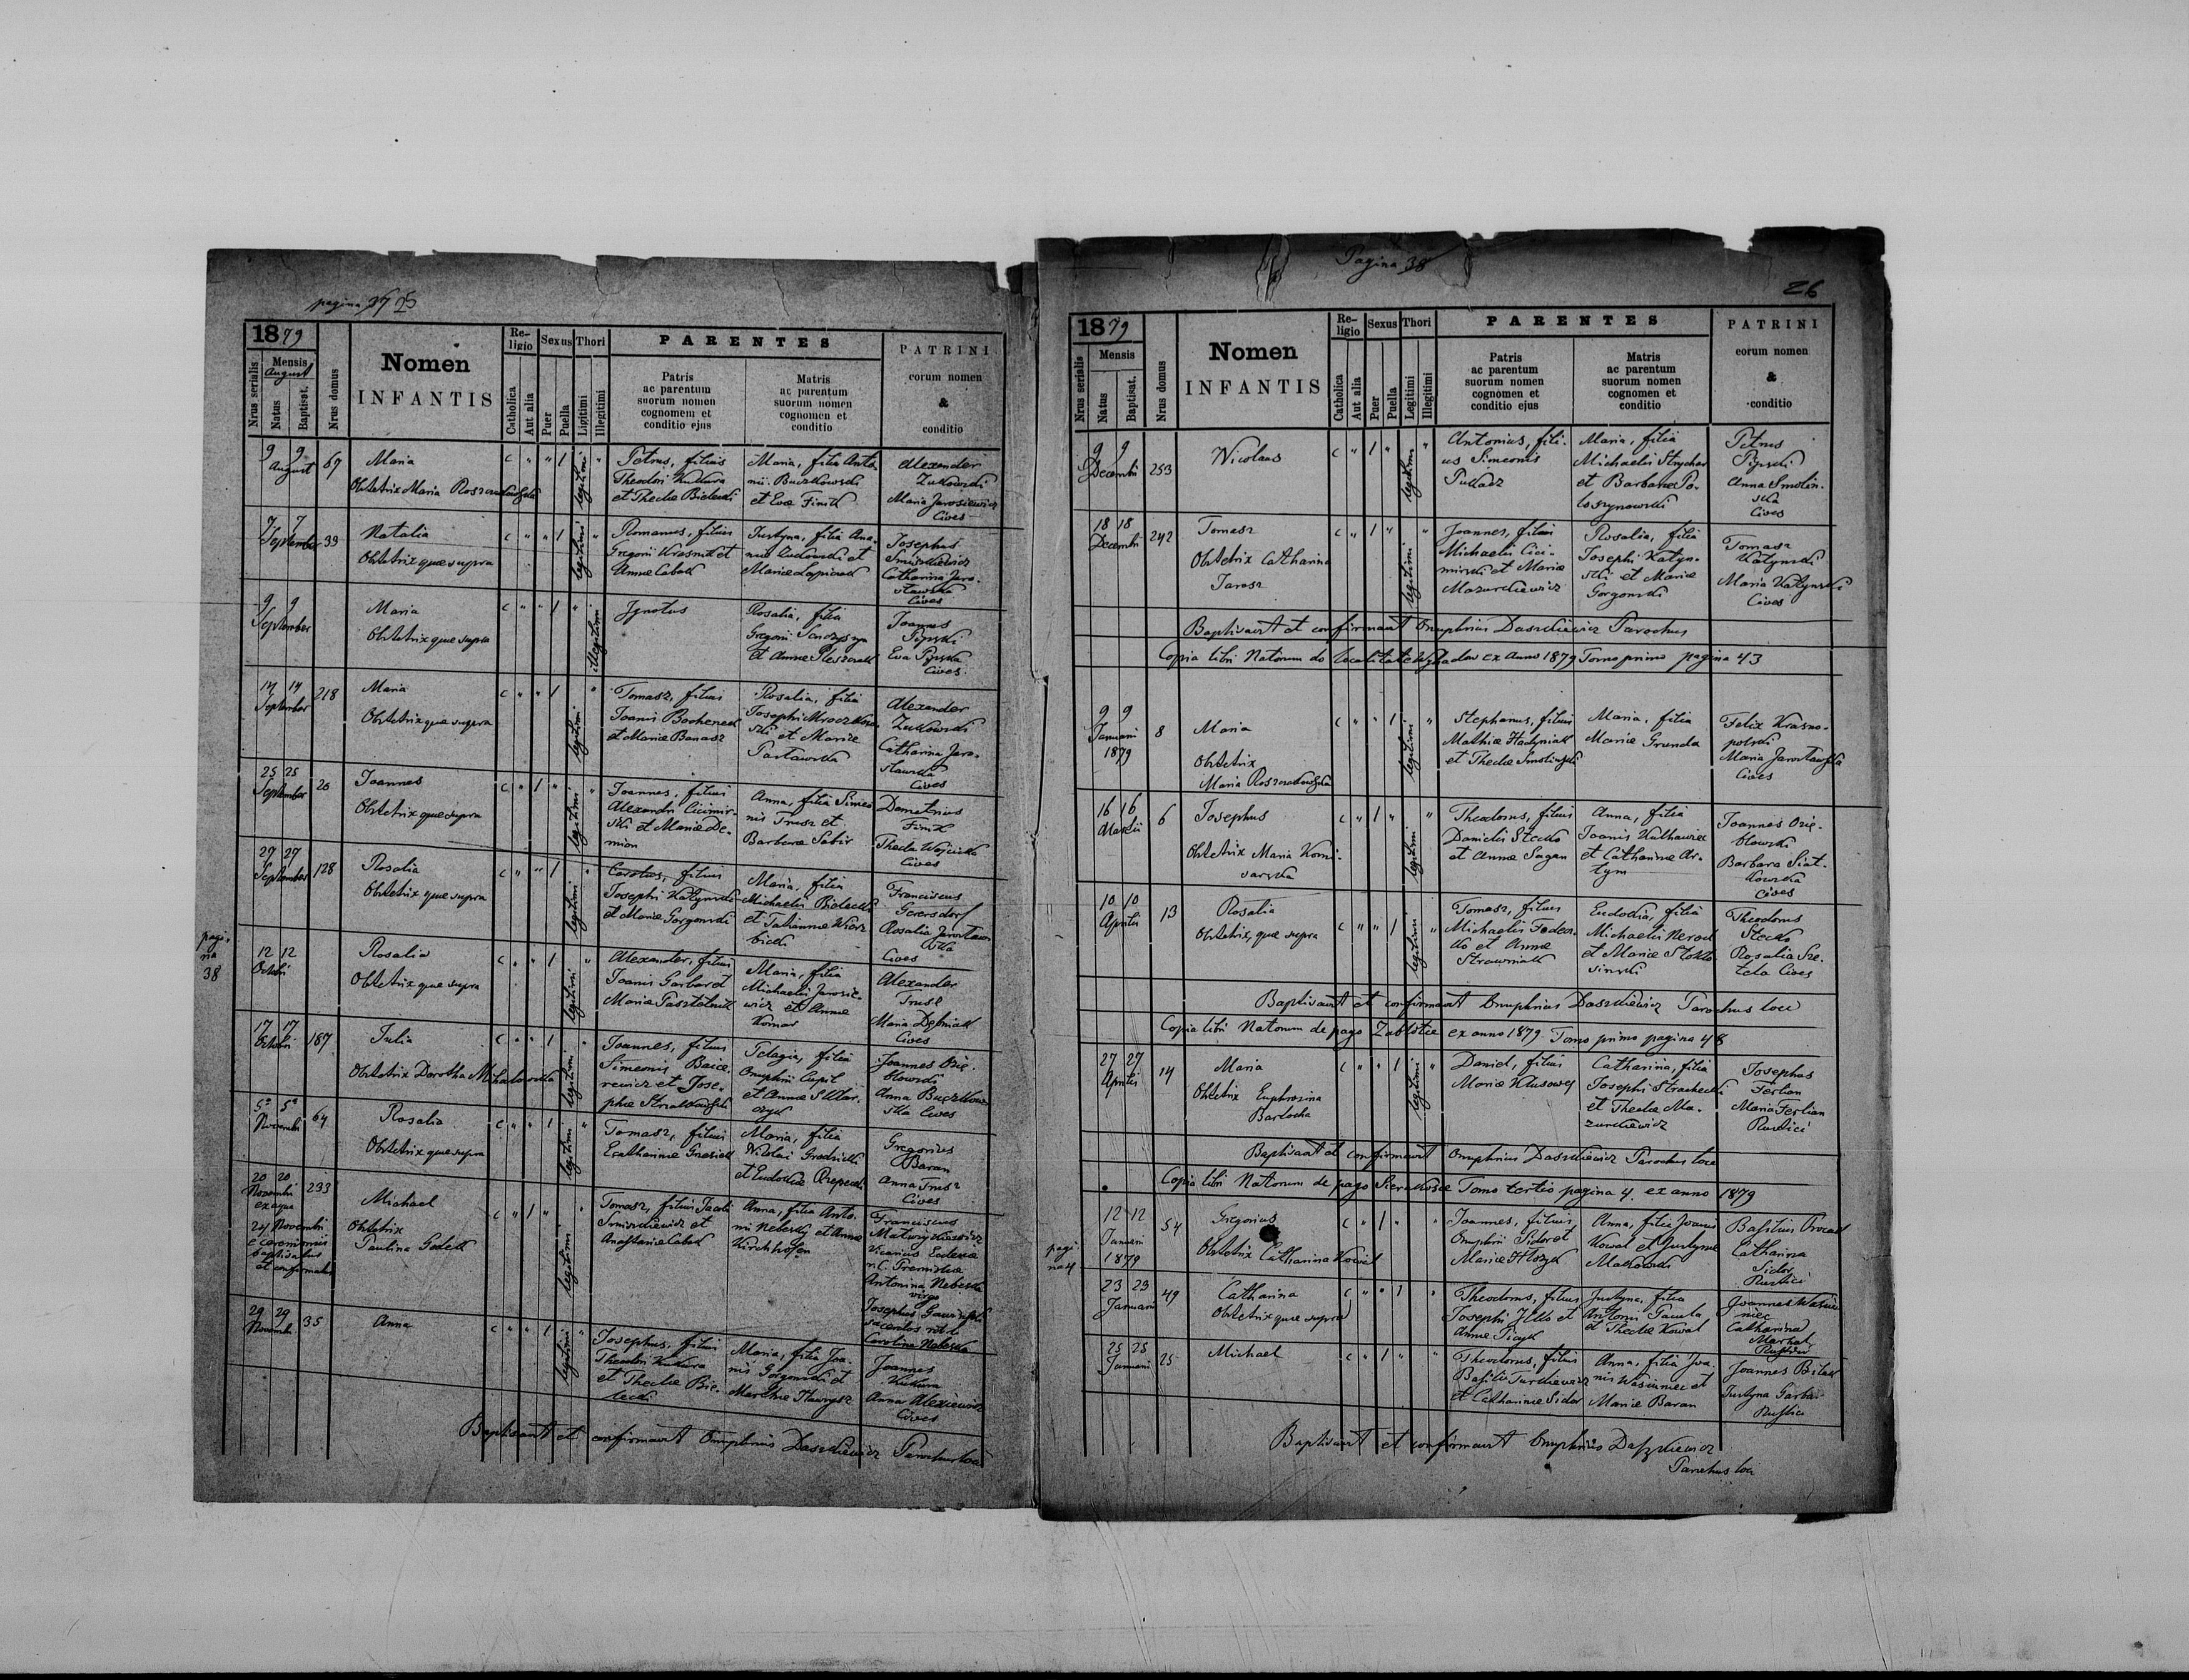 pagina 37 25
1879
Nrus serialis
Mensis
August
Natus
Baptisat.
Nrus domus
Nomen
INFANTIS
Religio
Catholica
Aut alia
Sexus
Puer
Puella
Thori
Ligitimi
Illegitimi
PARENTES
Patris
ac parentum
suorum nomen
cognomem et
conditio ejus
Matris
ac parentum
suorum nomen
cognomen et
conditio
PATRINI
eorum nomen
&
conditio
9 9
August 67
Maria
Obstetrix Maria
c " " / legitimi "
Petrus, filius
Theodori Kukura
et Theclae Bielecki
Maria, filia Anto-
nii Buczkowski
et Evae Finik
Alexander
Zukowski
Maria Jarosiewicz
Cives
7 7
September 39
Natalia
Obstetrix quae supra
c " " / legitimi "
Romanus, filius
Gregorii Krasnik et
Annae Cabak
Justyna, filia
et
Mariae
Josephus
Smiszkiewicz
Catharina Jaro-
sławska
Cives
9 9
September
Maria
Obstetrix quae supra
c " " / " illegitimi
Ignotus
Rosalia, filia
Gregorii
et Annae
Joannes
Pipski
Eva Pipska
Cives
14 14
September 218
Maria
Obstetrix quae supra
c " " / legitimi "
Tomasz, filius
Joanis Bochenek
et Mariae Banasz
Rosalia, filia
Josephi
ski et Mariae
Alexander
Zukowski
Catharina Jaro-
sławska
Cives
25 25
September 20
Joannes
Obstetrix quae supra
c " / " legitimi "
Joannes, filius
Alexandri Cicimir-
ski et Mariae De-
mion
Anna, filia Simeo
nis Trusz et
Barbarae Sabir
Demetrius
Finik
Thecla Wojcicka
Cives
27 27
September 128
Rosalia
Obstetrix quae supra
c " " / legitimi "
Carolus, filius
Josephi Katynski
et Mariae Gorgonski
Maria, filia
Michaelis Bielecki
et Tatiannae
Franciscus
Gersdorf
Rosalia
Cives
pagi-
na
38
12 12
Octobri
Rosalia
Obstetrix quae supra
c " " / legitimi "
Alexander, filius
Joanis Garbar et
Mariae
Maria, filia
Michaelis Jarosie-
wicz et Annae
Komar
Alexander
Trusz
Maria
Cives
17 17
Octobri 187
Julia
Obstetrix Dorothea
c " " / legitimi "
Joannes, filius
Simeonis
rewicz et Jose-
phae
Pelagia, filia
Onuphrii Cupil
et Annae
Joannes Ozie-
błowski
Anna Buczkow
ska Cives
5 5
Novembri 64
Rosalia
Obstetrix quae supra
c " " / legitimi "
Tomasz, filius
Catharinae Gresiak
Maria, filia
Nicolai Grodzicki
et Eudociae
Gregorius
Baran
Anna Trusz
Cives
20 20
Novembri 233
ex aqua
24 Novembri
e ceremoniis
baptisatus
et confirmatus
Michael
Obstetrix
Paulina
c " / " legitimi "
Tomasz, filius Jacobi
Smiszkiewicz et
Anastasiae Cabak
Anna, filia Anto-
nii Nebesky et Annae
Kirchhofen
Franciscus
Vicarius Ecclesiae
r. l. Premisliae
Antonina Nebeska
virgo
Josephus
sacerdos rit. l.
Carolina Nebeska
29 29
Novembri 35
Anna
c " " / legitimi "
Josephus, filius
Theodori Kukura
et Theclae Bie-
lecki
Maria, filia Joa-
nis Gorgonski et
Marthae Hawrysz
Joannes
Kukura
Anna Alexiewicz
Cives
Baptisavit et confirmavit Onuphrius Daszkiewicz Parochus loci
Pagina 38
26
1879
Nrus serialis
Mensis
Natus
Baptisat.
Nrus domus
Nomen
INFANTIS
Religio
Catholica
Aut alia
Sexus
Puer
Puella
Thori
Legitimi
Illegitimi
PARENTES
Patris
ac parentum
suorum nomen
cognomem et
conditio ejus
Matris
ac parentum
suorum nomen
cognomen et
conditio
PATRINI
eorum nomen
&
conditio
9 9
Decembri 253
Nicolaus
c " / " legitimi "
Antonius, fili-
us Simeonis
Pukacz
Maria, filia
Michaelis Strychar
et Barbarae Po-
Petrus
Pipski
Anna Smolin-
ska
Cives
18 18
Decembri 242
Tomasz
Obstetrix Catharina
Jarosz
c " / " legitimi "
Joannes, filius
Michaelis Cici-
mirski et Mariae
Mazurkiewicz
Rosalia, filia
Josephi Katyn-
ski et Mariae
Gorgonski
Tomasz
Katynski
Maria Katynski
Cives
Baptisavit et confirmavit Onuphrius Daszkiewicz Parochus
Copia libri Natorum de localitate ex Anno 1879 Tomo primo pagina 43
9 9
Januari 8
1879
Maria
Obstetrix
Maria
c " " / legitimi "
Stephanus, filius
Mathiae Hadyniak
et Theclae Smolinski
Maria, filia
Mariae Grunda
Felix Krasno-
polski
Maria Jarosławska
Cives
16 16
Martii 6
Josephus
Obstetrix Maria Komi-
sarska
c " / " legitimi "
Theodorus, filius
Danielis Stecko
et Annae Sagan
Anna, filia
Joanis Kulhawiec
et Catharinae Ar-
tym
Joannes Ozie-
błowski
Barbara Siat-
kowska
Cives
10 10
Aprilis 13
Rosalia
Obstetrix, quae supra
c " " / legitimi "
Tomasz, filius
Michaelis Fedor-
ko et Annae
Strawniak
Eudochia, filia
Michaelis Nerod
et Mariae Stokło-
sinski
Theodorus
Stecko
Rosalia Sze-
tela Cives
Baptisavit et confirmavit Onuphrius Daszkiewicz Parochus loci
Copia libri Natorum de pago Zabłotce ex anno 1879. Tomo primo pagina 48
27 27
Aprilis 14
Maria
Obstetrix Euphrosina
Bartocha
c " " / legitimi "
Daniel, filius
Mariae Klusowej
Catharina, filia
Josephi Strachecki
et Theclae Ma-
zurkiewicz
Josephus
Ferlian
Maria Ferlian
Rustici
Baptisavit et confirmavit Onuphrius Daszkiewicz Parochus loci
Copia libri Natorum de pago Sierakośce Tomo tertio pagina 4. ex anno 1879
pagi-
na 4
12 12
Januari 54
1879
Gregorius
Obstetrix Catharina Kowal
c " / " "
Joannes, filius
Onuphrii Sidor et
Mariae
Anna, filia Joanis
Kowal et Justynae
Makowski
Basilius
Catharina
Sidor
Rustici
23 23
Januari 49
Catharina
Obstetrix quae supra
c " " / "
Theodorus, filius
Josephi et
Annae
Justyna, filia
Antonii Pacuła
et Theclae Kowal
Joannes Wasiu-
niec
Catharina
Rustici
25 25
Januari 25
Michael
c " / " "
Theodorus, filius
Basilii Turkiewicz
et Catharinae Sidor
Anna, filia Joa-
nis Wasiuniec et
Mariae Baran
Joannes
Justyna Garbar
Rustici
Baptisavit et confirmavit Onuphrius Daszkiewicz
Parochus loci